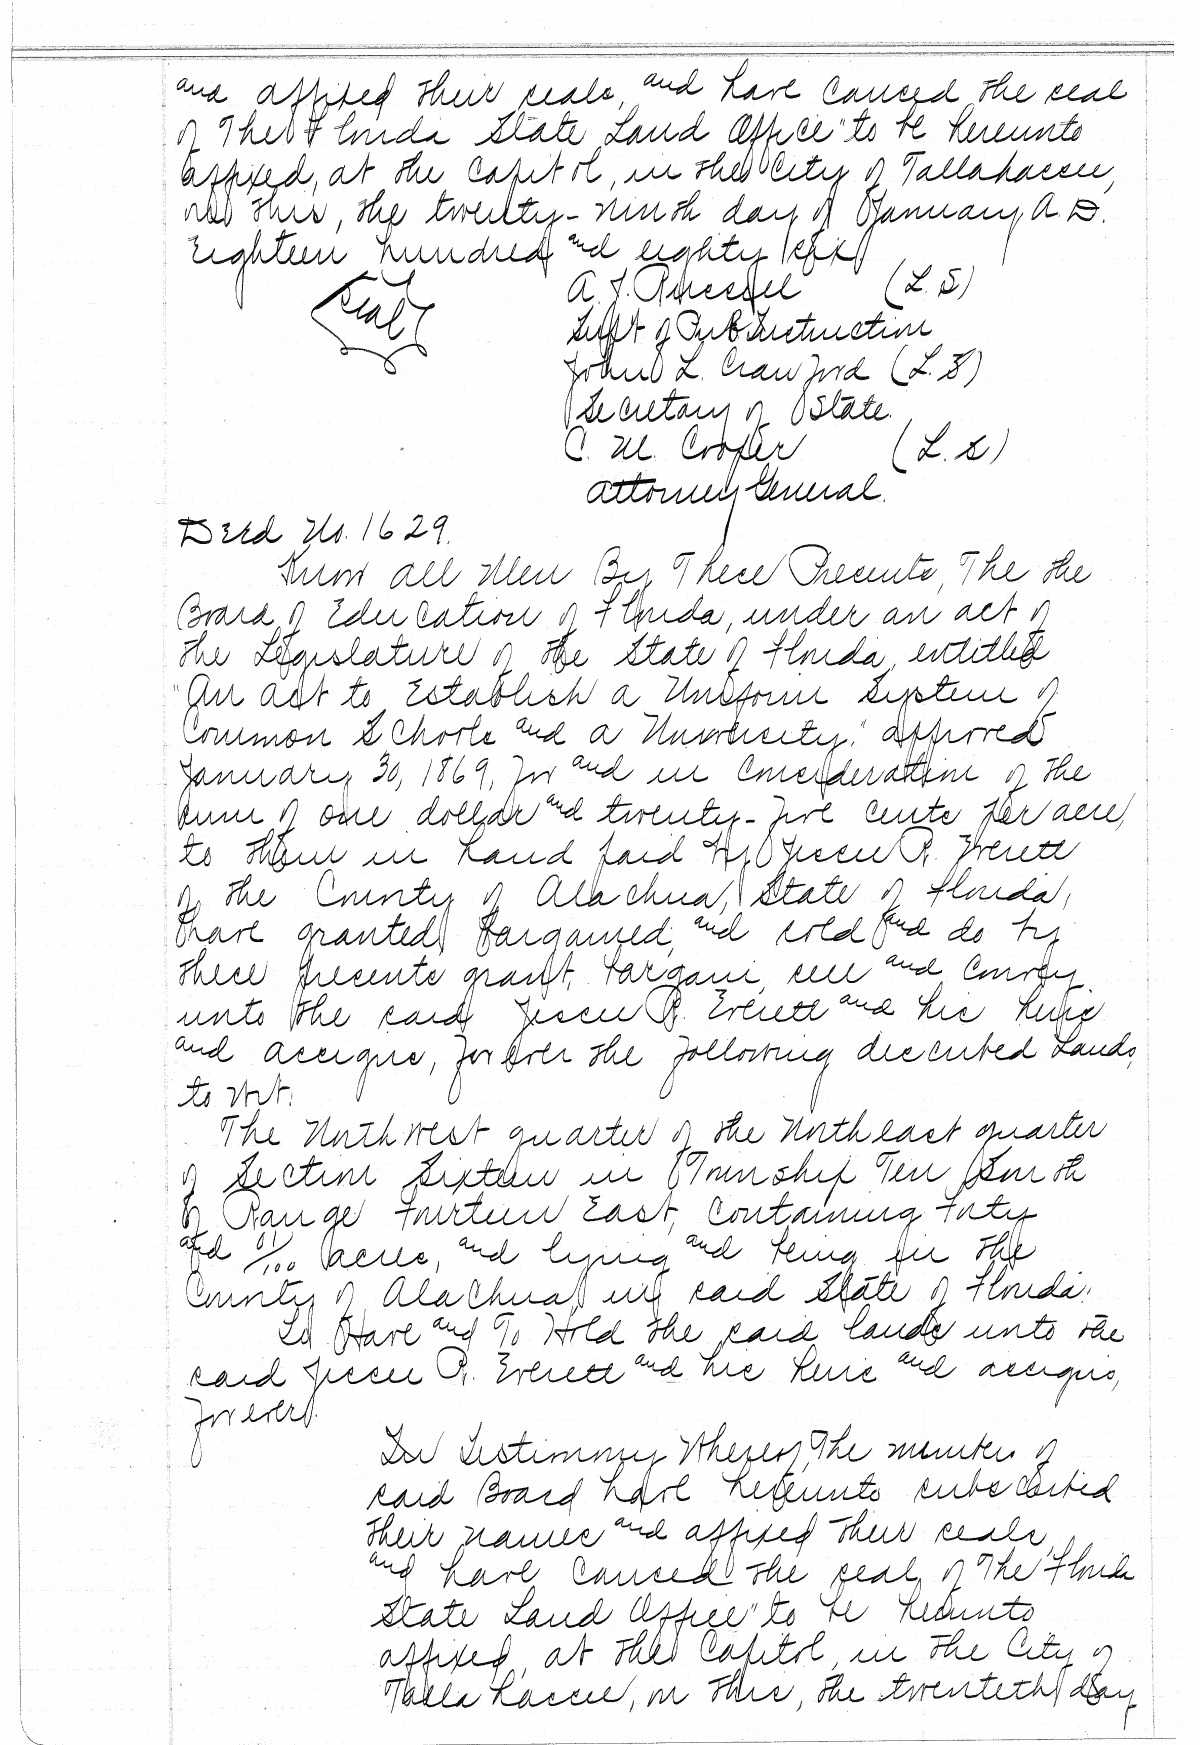 and affixed their seals, and have caused the seal
of The "Florida State Land Office" to be hereunto
affixed, at the Capitol, in the City of Tallahassee,
on this, the twenty-ninth day of January A.D.
Eighteen hundred and eighty six
Seal
A. J. Russell (L.S)
Supt of Pub Instruction
John L. Crawford (L.S)
Secretary of State.
C. M. Cooper (L.S)
Attorney General.
Deed No. 1629.
Know All Men By These Presents, The the
Board of Education of Florida, under an act of
the Legislature of the State of Florida, entitled
"An act to Establish a Uniform System of
Common Schools and a University," approved
January 30, 1869, for and in Consideration of the
sum of one dollar and twenty-five cents per acre,
to them in hand paid by Jessee R. Everett
of the County of Alachua, State of Florida,
have granted, bargained, and sold and do by
these presents grant, bargain, sell and Convey
unto the said Jessee R. Everett and his heirs
and assigns, forever the following described Lands,
to wit:
The Northwest quarter of the Northeast quarter
of Section Sixteen in Township Ten South
of Range Fourteen East, Containing Forty
and 01/100 acres, and lying and being in the
County of Alachua in said State of Florida.
To Have and To Hold the said lands unto the
said Jessee R. Everett and his heirs and assigns,
forever.
In Testimony Whereof, The members of
said Board have hereunto subscribed
their names and affixed their seals,
and have caused the seal of The "Florida
State Land Office" to be hereunto
affixed, at the Capitol, in the City of
Tallahassee, on this, the twenteth day